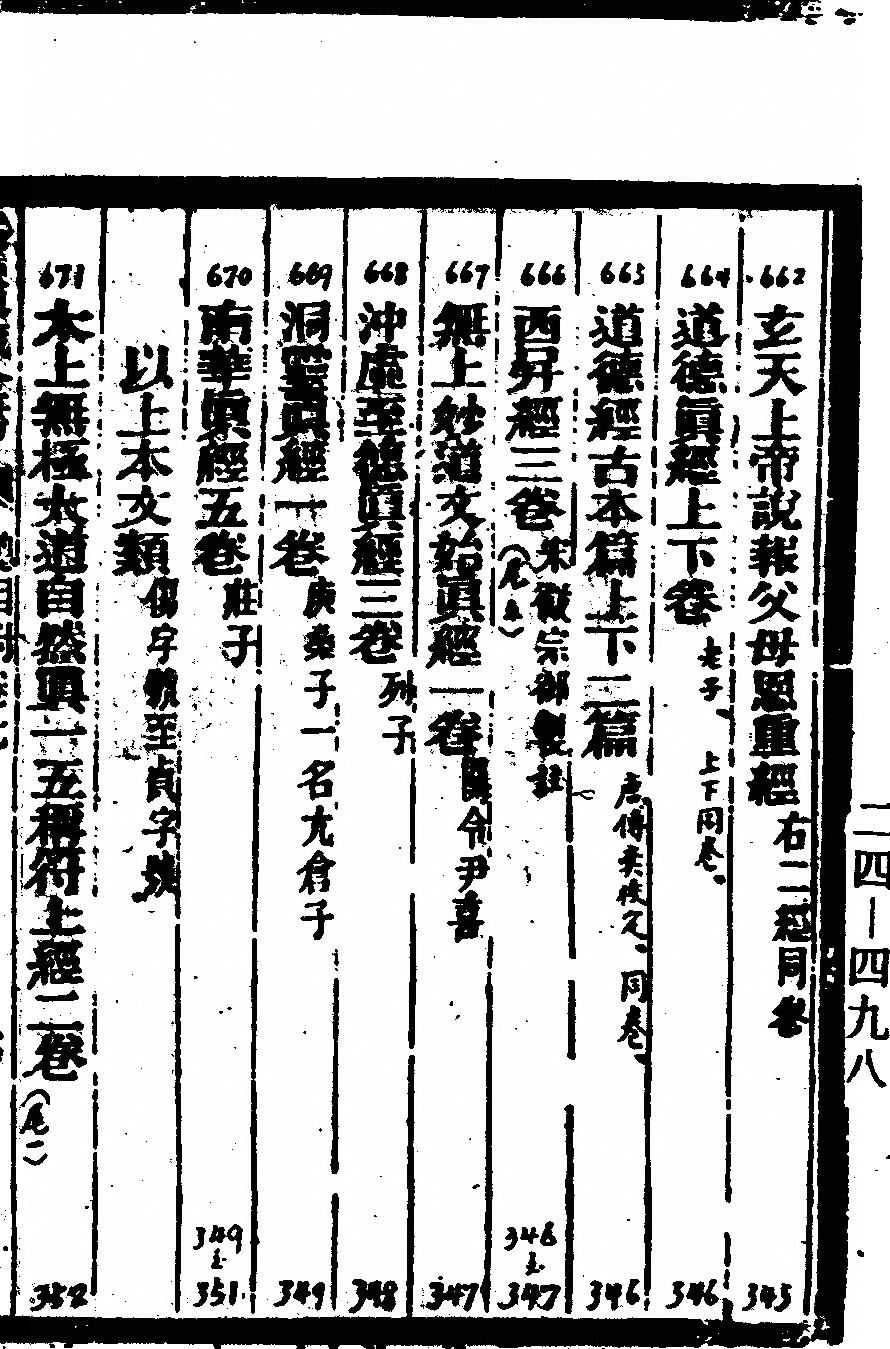 二四—四九八
662 玄天上帝說報父母恩重經 右二經同卷 345
664 道德眞經上下卷 老子、上下同卷、 346
665 道德經古本篇上下二篇 唐傅奕校定、同卷、 346
666 西昇經三卷 宋徽宗御製註 (尾) 346至347
667 無上妙道文始眞經一卷 關令尹喜 347
668 沖虛至德眞經三卷 列子 348
669 洞靈眞經一卷 庚桑子一名亢倉子 349
670 南華眞經五卷 莊子 349至351
以上本文類 傷字號至貞字號
671 太上無極大道自然眞一五稱符上經二卷 (尾一) 352